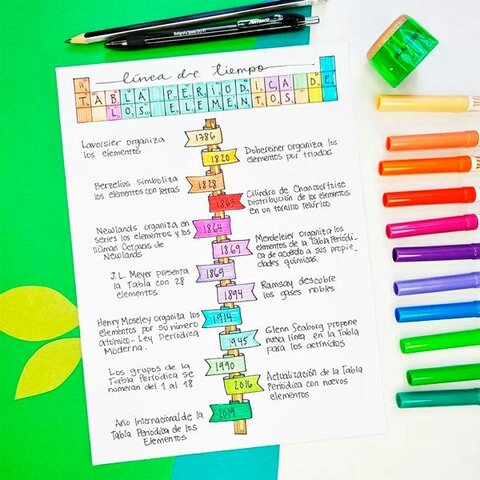 línea de tiempo
TABLA PERIÓDICA DE
LOS ELEMENTOS
1786
Lavoisier organiza
los elementos
1820
Dobereiner organiza los
elementos por triadas
1828
Berzelius simboliza
los elementos con letras
1863
Cilindro de Chancourtoise
Distribución de los elementos
en un tornillo telúrico
1864
Newlands organiza en
series los elementos y los
llama Octavas de
Newlands
1869
Mendeleiev organiza los
elementos de la Tabla Periódi-
ca de acuerdo a sus propie-
dades químicas.
1869
J.L. Meyer presenta
la Tabla con 28
elementos
1894
Ramsay descubre
los gases nobles.
1914
Henry Moseley organiza los
elementos por su número
atómico - Ley Periódica
Moderna.
1945
Glenn Seaborg propone
nueva línea en la Tabla
para los actínidos
1990
Los grupos de la
Tabla Periódica se
numeran del 1 al 18
2016
Actualización de la Tabla
Periódica con nuevos
elementos
2019
Año Internacional de la
Tabla Periódica de los
Elementos